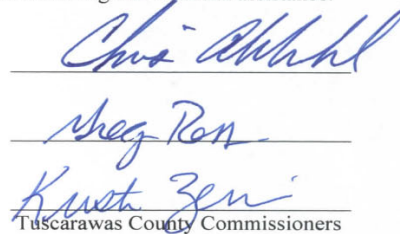 Chris Abbuhl
Greg Ress
Kristin Zemis
Tuscarawas County Commissioners